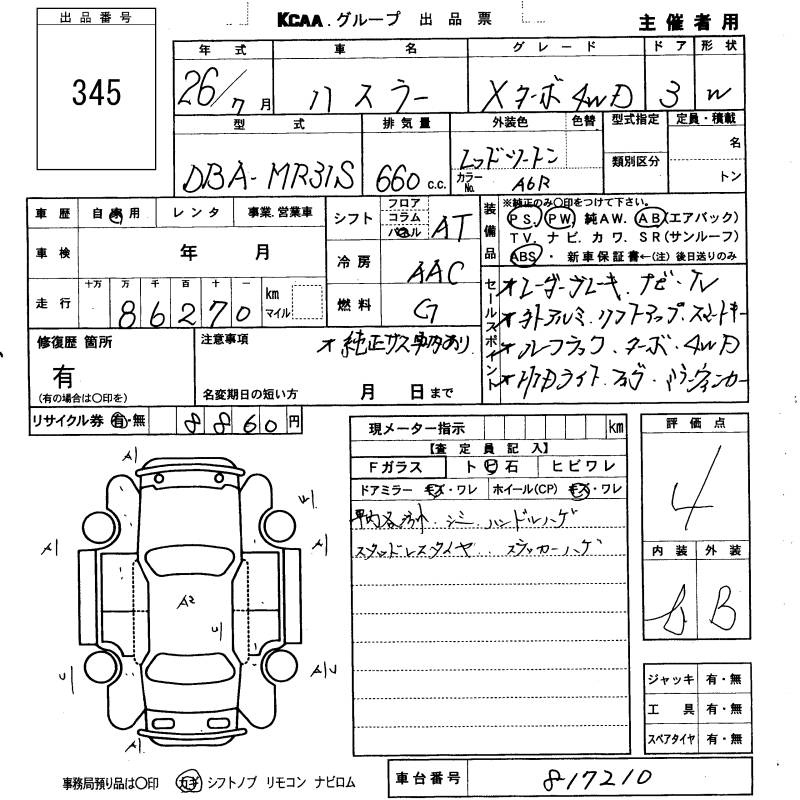 出品番号
345
KCAA.グループ 出品票
主催者用
年式 車名 グレード ドア 形状
26/7月 ハスラー Xターボ 4WD 3 W
型式 排気量 外装色 色替 型式指定 定員・積載
DBA-MR31S 660 c.c. レッドツートン 類別区分 名
カラーNo. A6R トン
車歴 自家用 レンタ 事業.営業車
シフト フロア コラム パネル AT
車検 年 月
冷房 AAC
走行 十万 万 千 百 十 一 km マイル
86270
燃料 G
装備品 ※純正のみ○印をつけて下さい。
PS. PW. 純AW. AB(エアバック)
TV. ナビ. カワ. SR(サンルーフ)
ABS・ 新車保証書←(注)後日送りのみ
セールスポイント
*レーダーブレーキ. ナビ・TV
リフトアップ. スマートキー
*ルーフラック. ターボ. 4WD
*HIDライト. フォグ.
修復歴 箇所
有
(有の場合は○印を)
注意事項
*純正サス車内あり
名変期日の短い方 月 日まで
リサイクル券 有・無 8860 円
現メーター指示 km
【査定員記入】
Fガラス ト ビ 石 ヒビワレ
ドアミラー キズ・ワレ ホイール(CP) キズ・ワレ
シミ ハンドルハゲ
スタッドレスタイヤ ステッカーハゲ
評価点
4
内装 外装
B
A1
A1
A1
A2
ジャッキ 有・無
工具 有・無
スペアタイヤ 有・無
事務局預り品は○印 カギ シフトノブ リモコン ナビロム
車台番号 817210